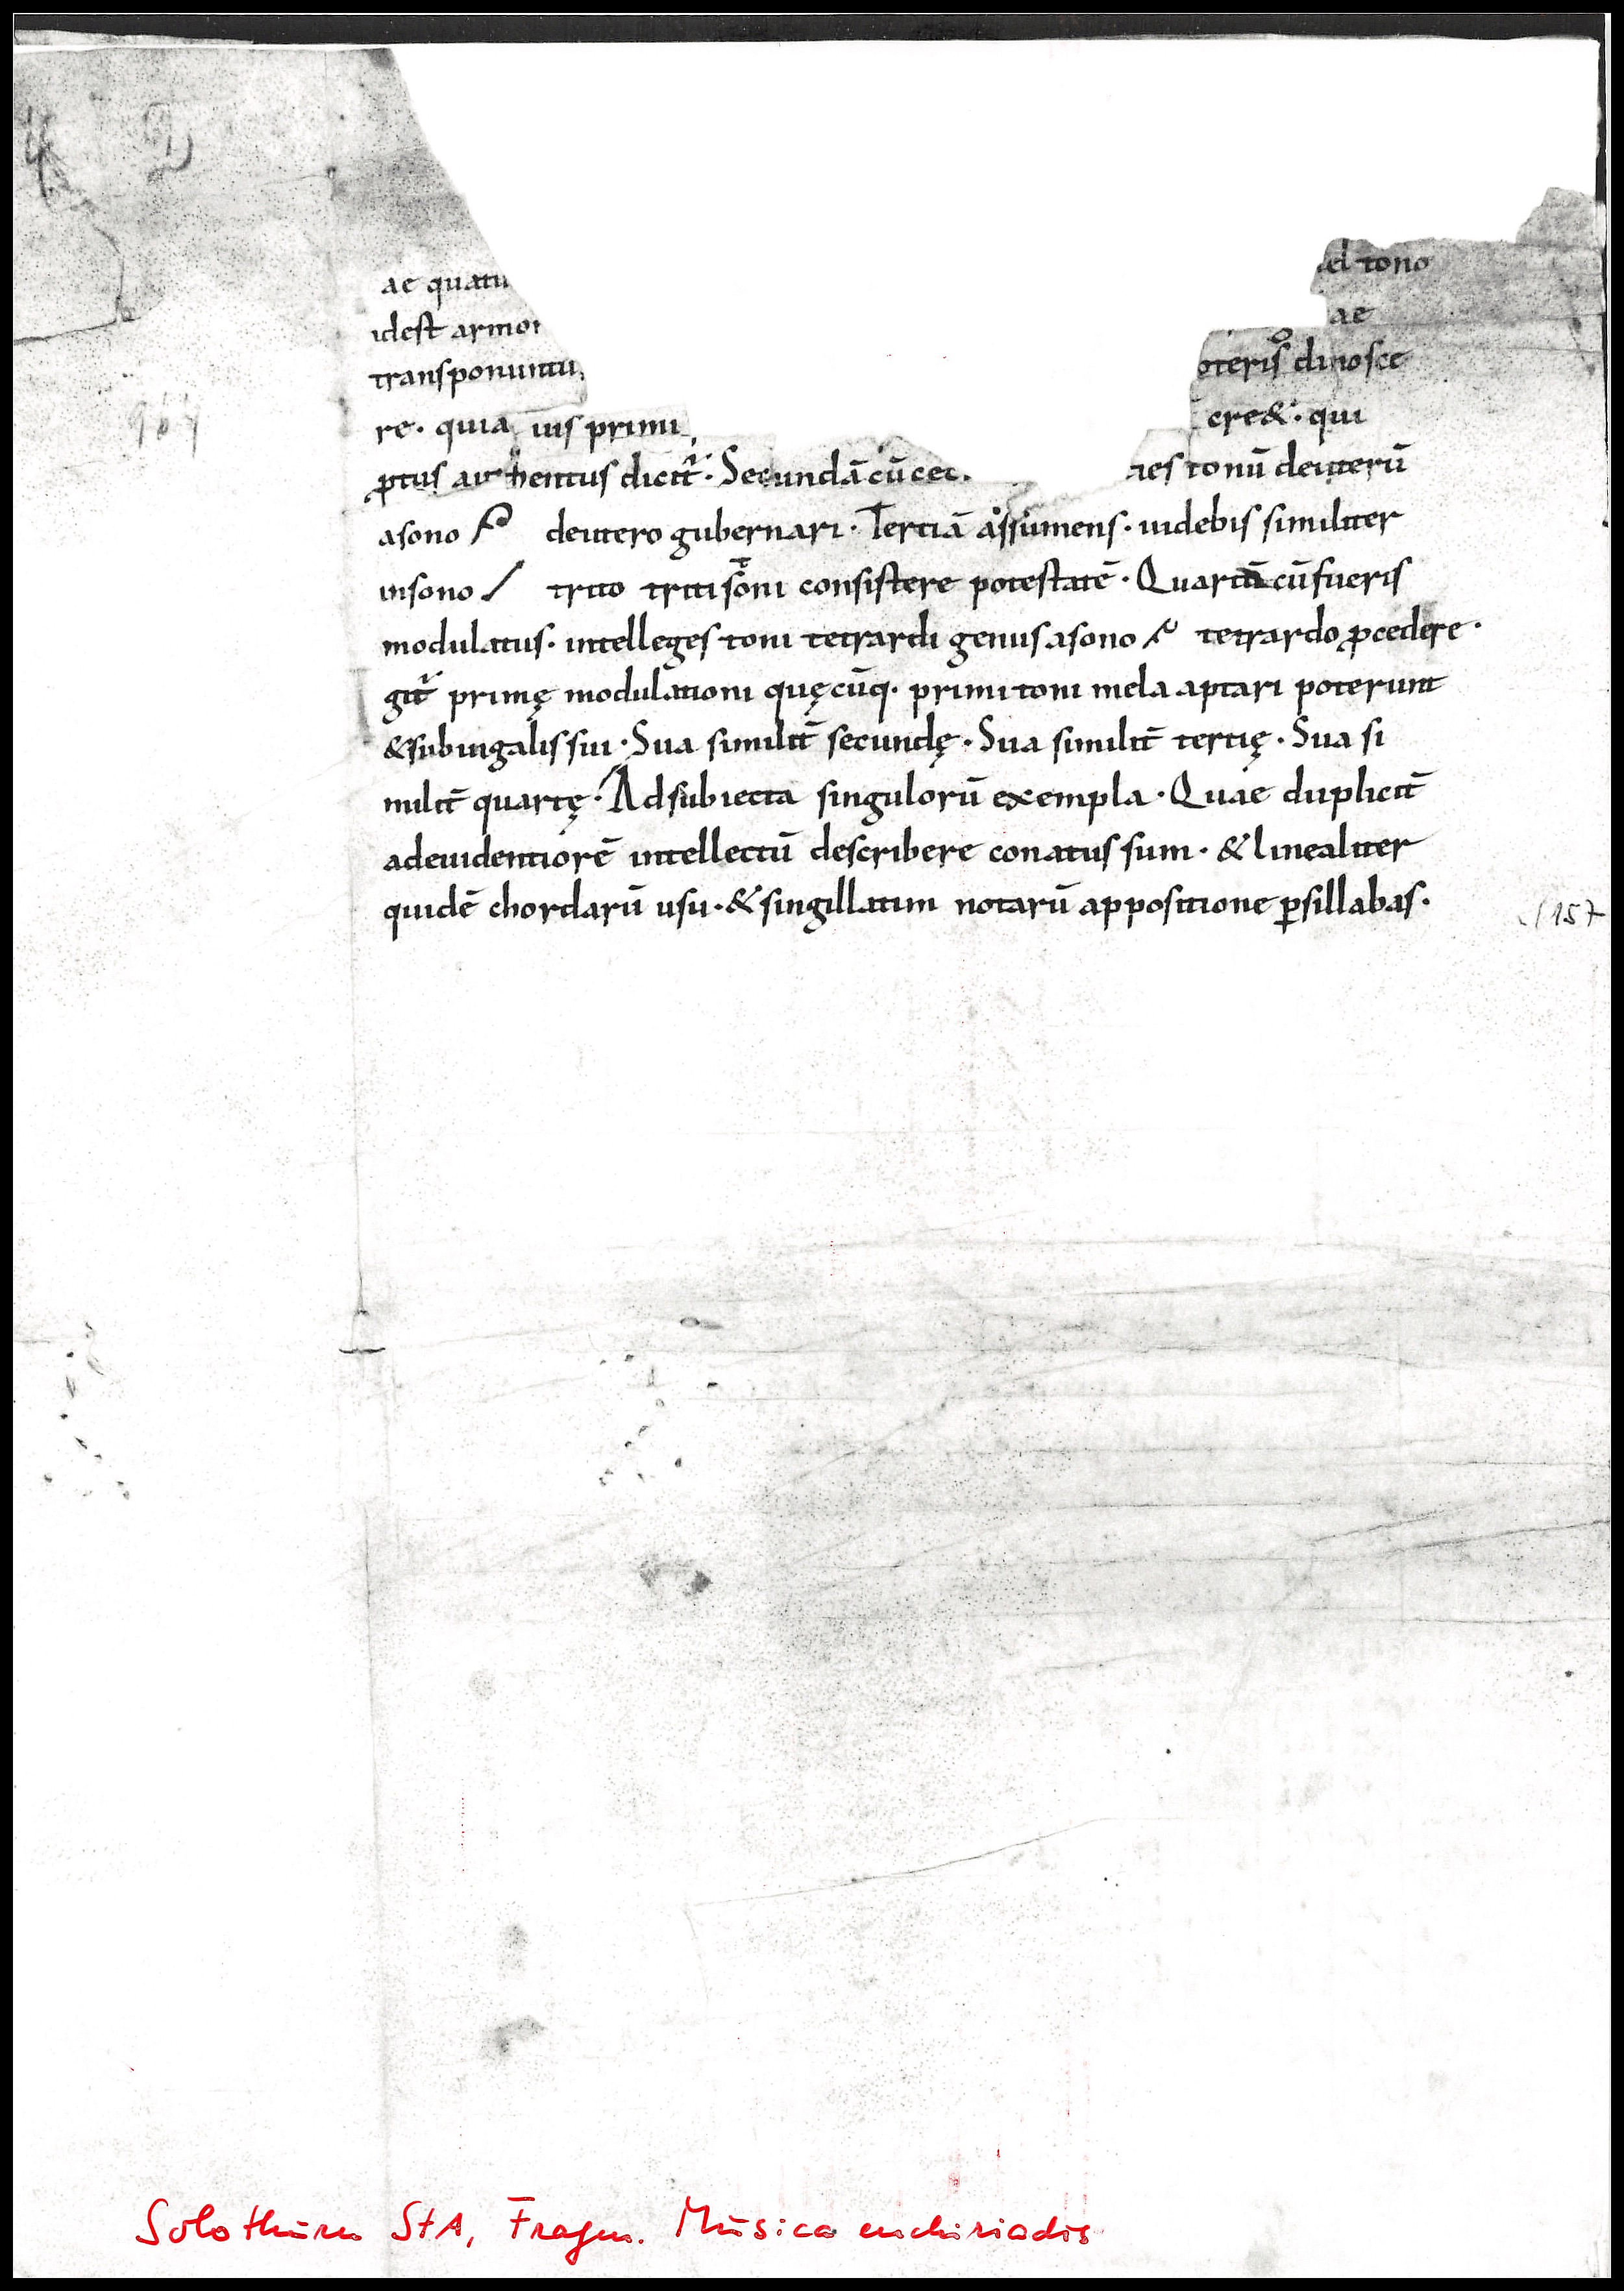 el tono
ae quatu
ae
idest armon
oteris dinosce
transponuntu
cer&· qui
re· quia uis primi
ꝓtus authentus dicit᷑· Secundā cū cec aes tonū deuterū
asono deutero gubernari· Tertiā assumens· uidebis similiter
insono trito triti soni consistere potestatē· Quartā cū fueris
modulatus· intelleges toni tetrardi genus asono tetrardo ꝓcedere·
git᷑ primę modulationi quęcūq· primi toni mela aptari poterunt
&subiugalis sui· Sua similit̄ secundę· Sua similit̄ tertię· Sua si
milit̄ quartę· Adsubiecta singulorū exempla· Quae duplicit̄
adeuidentiorē intellectū describere conatus sum· & linealiter
quidē chordarū usu· & singillatim notarū appositione ꝑsillabas·
157
Solothurn StA, Fragm. Musica enchiriadis